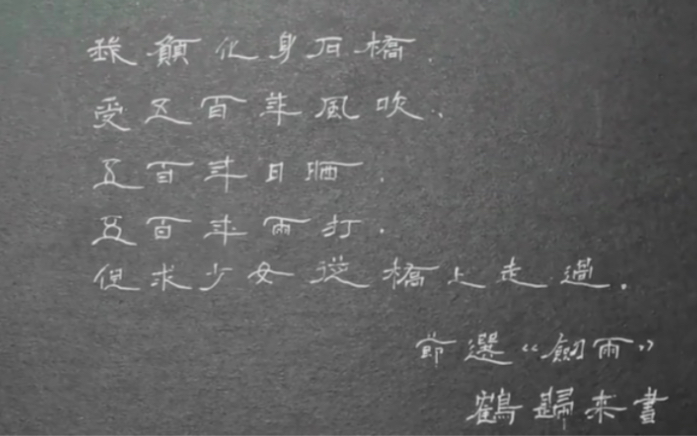 我願化身石橋.
受五百年風吹.
五百年日晒.
五百年雨打.
但求少女從橋上走過.
節選“劍雨”
鶴歸來書